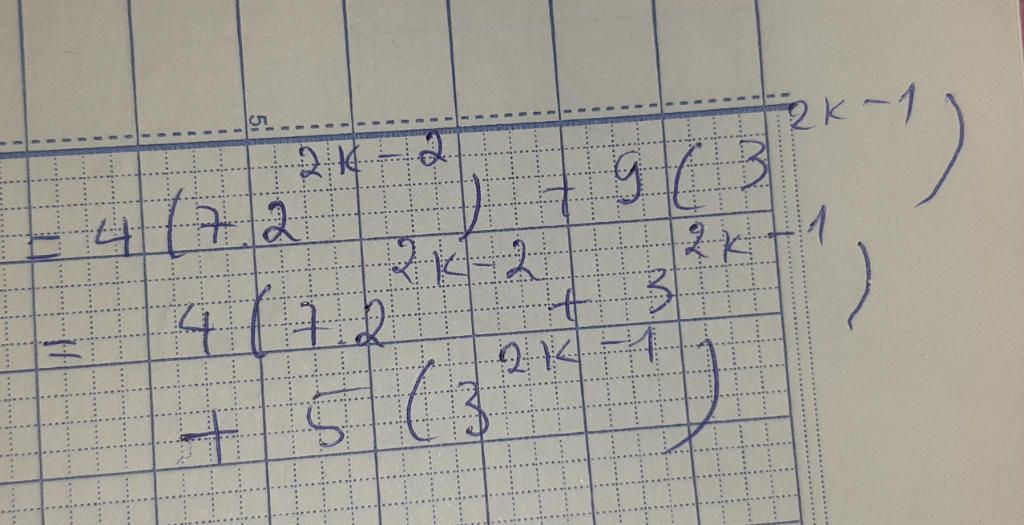 = 4 (7.2^{2k-2}) + 9 (3^{2k-1})
= 4 (7.2^{2k-2} + 3^{2k-1})
+ 5 (3^{2k-1})